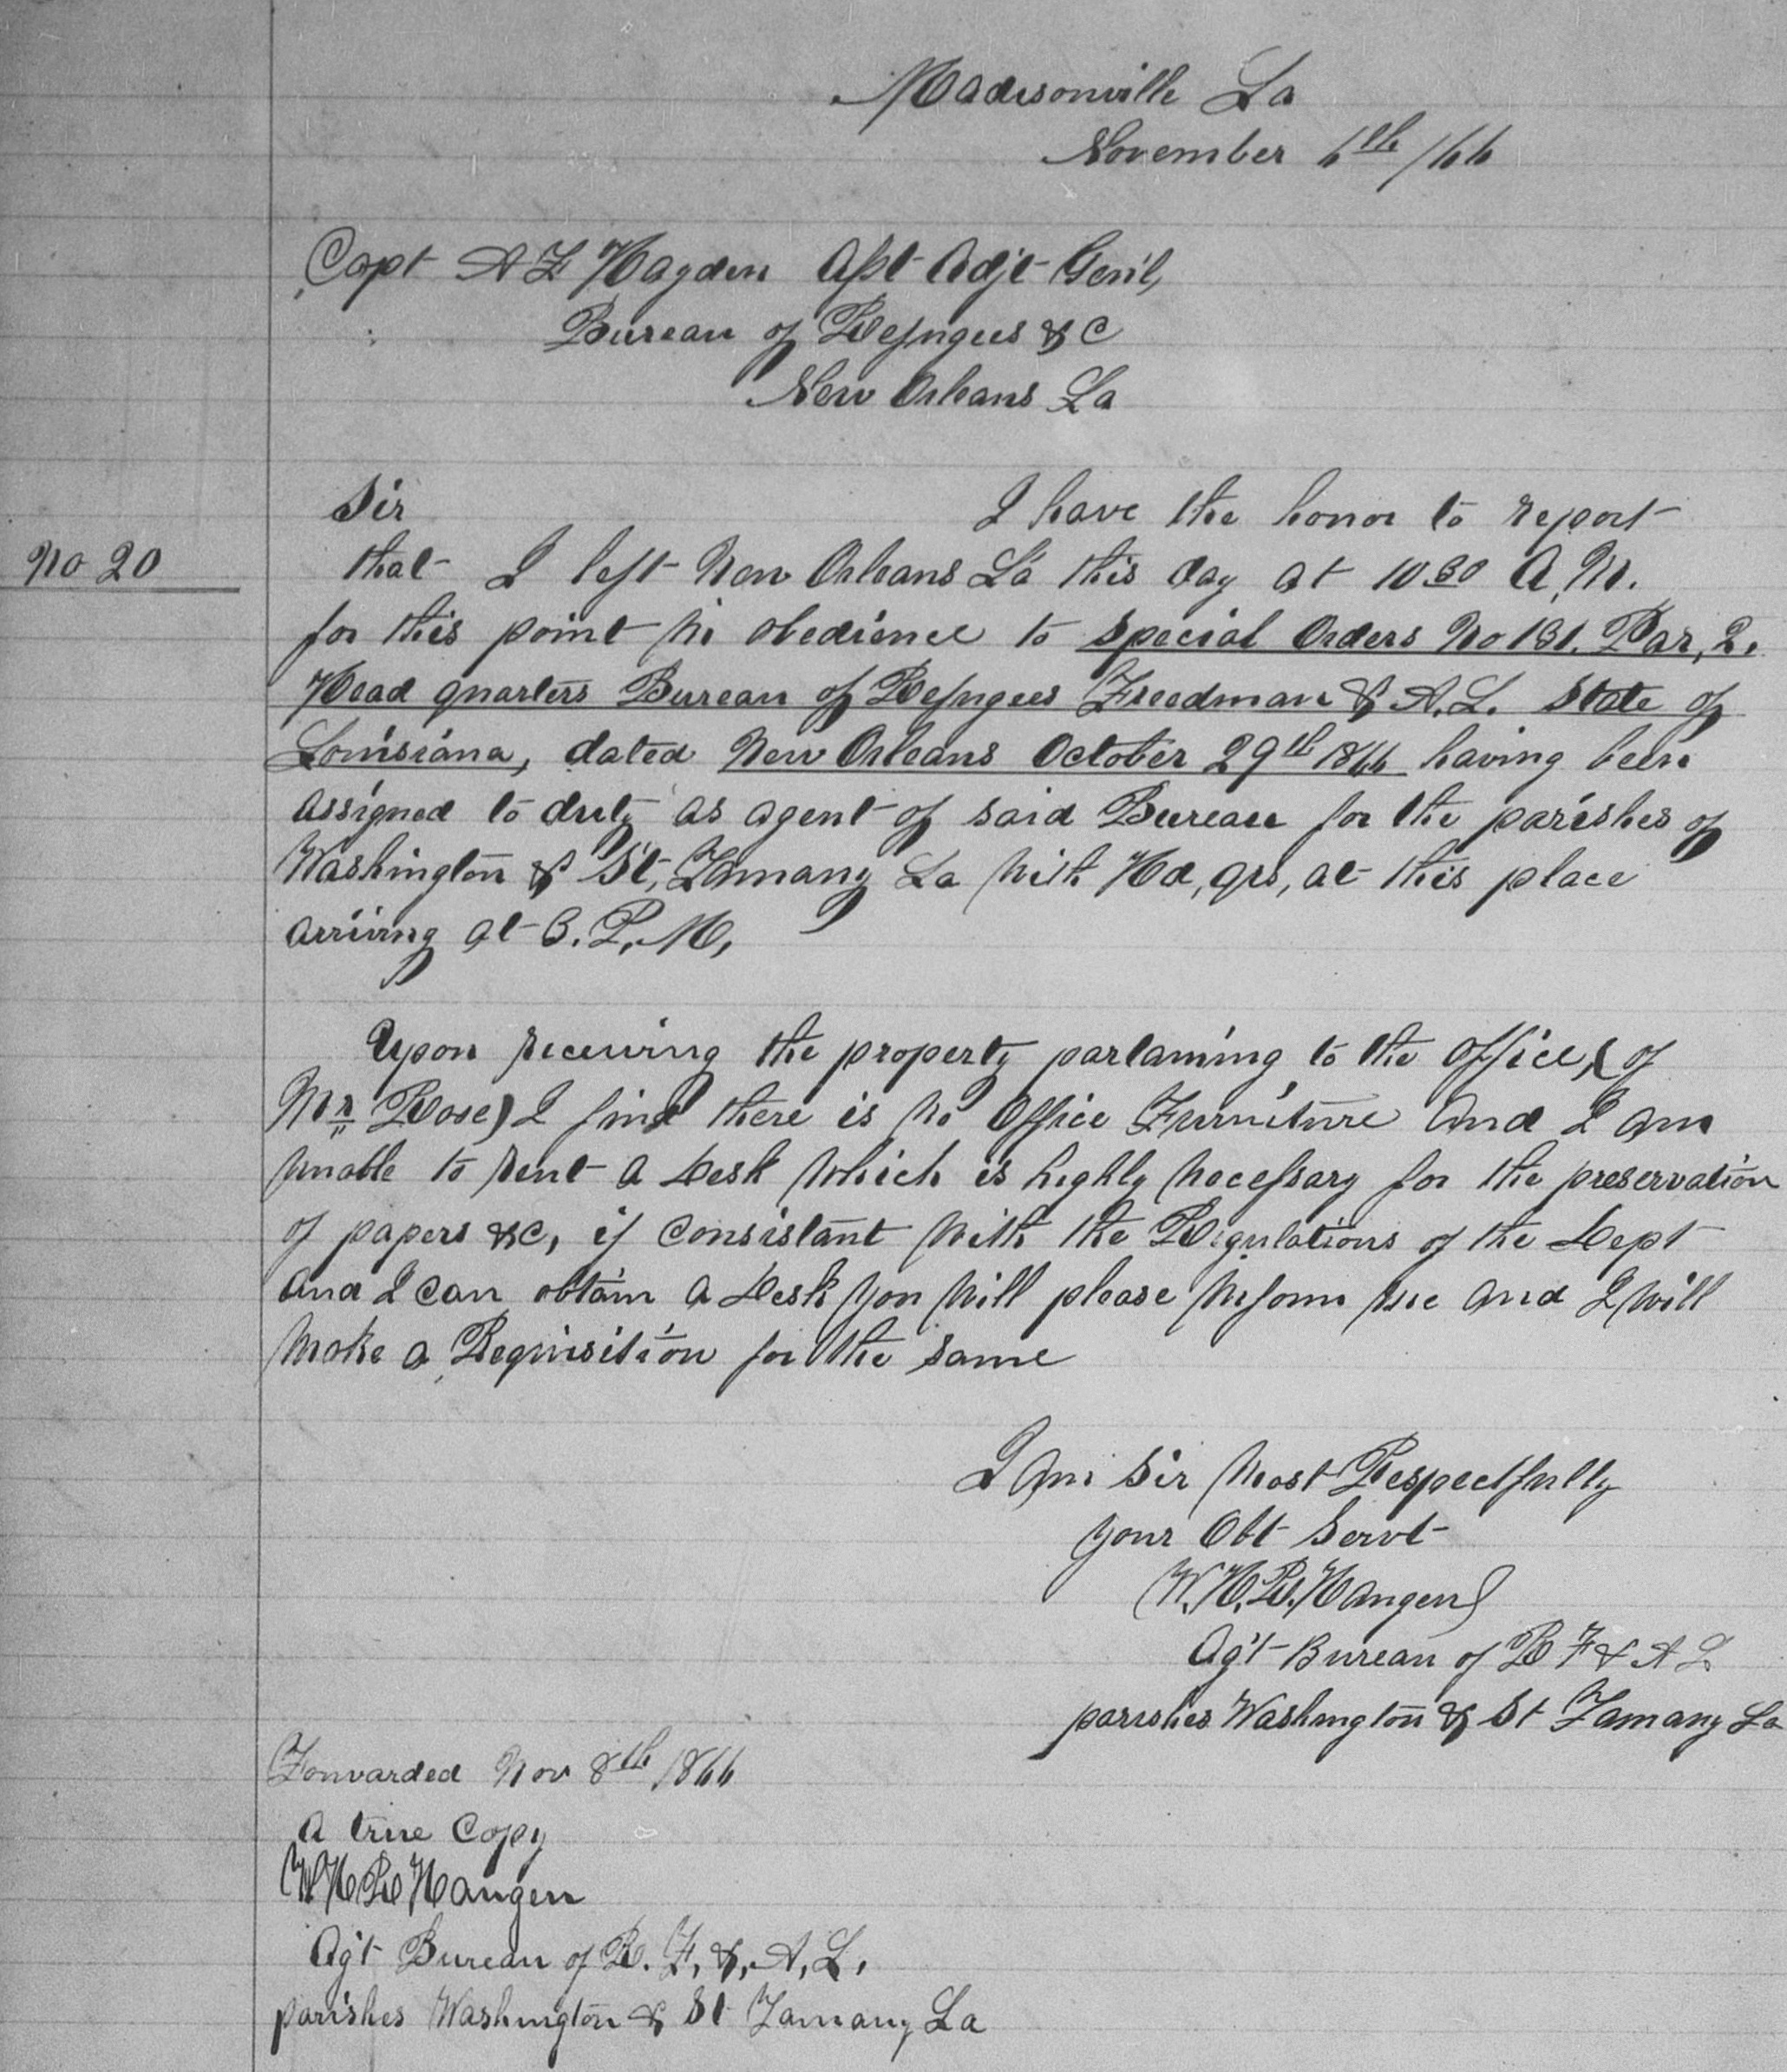 Madisonville La
November 6th /66
Capt A F Hayden Asst Adjt Gen'l,
Bureau of Refugees & C
New Orleans La
Sir I have the honor to report
No 20
that I left New Orleans La this day at 10 30 A, M.
for this point in obedience to Special Orders No 131. Par, 2.
Head quarters Bureau of Refugees Freedman & A. L. State of
Louisiana, dated New Orleans October 29th 1866 having been
assigned to duty as agent of said Bureau for the parishes of
Washington & St, Tamany La with Hd, qrs, at this place
arriving at 3. P. M,
Upon receiving the property partaining to the office, (of
Mr Rose) I find there is no Office Furniture and I am
unable to rent a Desk which is highly necessary for the preservation
of papers &c, if consistant with the Regulations of the Dept
and I can obtain a Desk you will please inform me and I will
make a Requisition for the same
I am Sir most Respectfully
your Obt Servt
(W. H. R. Hangen)
Ag't Bureau of R F & A L
parishes Washington & St Tamany La
Forwarded Nov 8th 1866
A true Copy
W H R Hangen
Ag't Bureau of R. F. &, A, L,
parishes Washington & St Tamany La